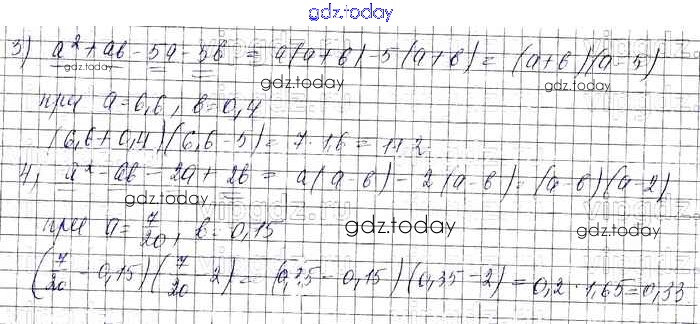 gdz.today
3) a² + ab - 5a - 5b = a(a+b) - 5(a+b) = (a+b)(a-5)
gdz.today
gdz.today
gdz.today
при a = 6,6, b = 0,4
(6,6+0,4)(6,6-5) = 7·1,6 = 11,2
4) a² - ab - 2a + 2b = a(a-b) - 2(a-b) = (a-b)(a-2)
gdz.today
gdz.today
gdz.today
при a = 7/20, b = 0,15
(7/20 - 0,15)(7/20 - 2) = (0,35 - 0,15)(0,35 - 2) = 0,2 · 1,65 = 0,33